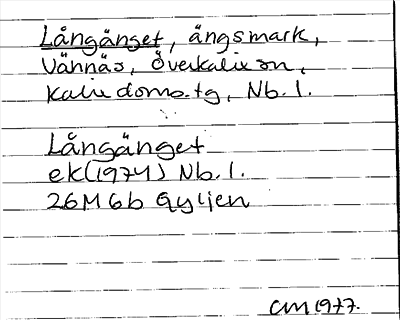 Långänget, ängsmark,
Vännäs, Överkalix sn,
Kalix doms.tg, Nb.l.
Långänget
ek(1974) Nb.l.
26M6b Gyljen
CM1977.